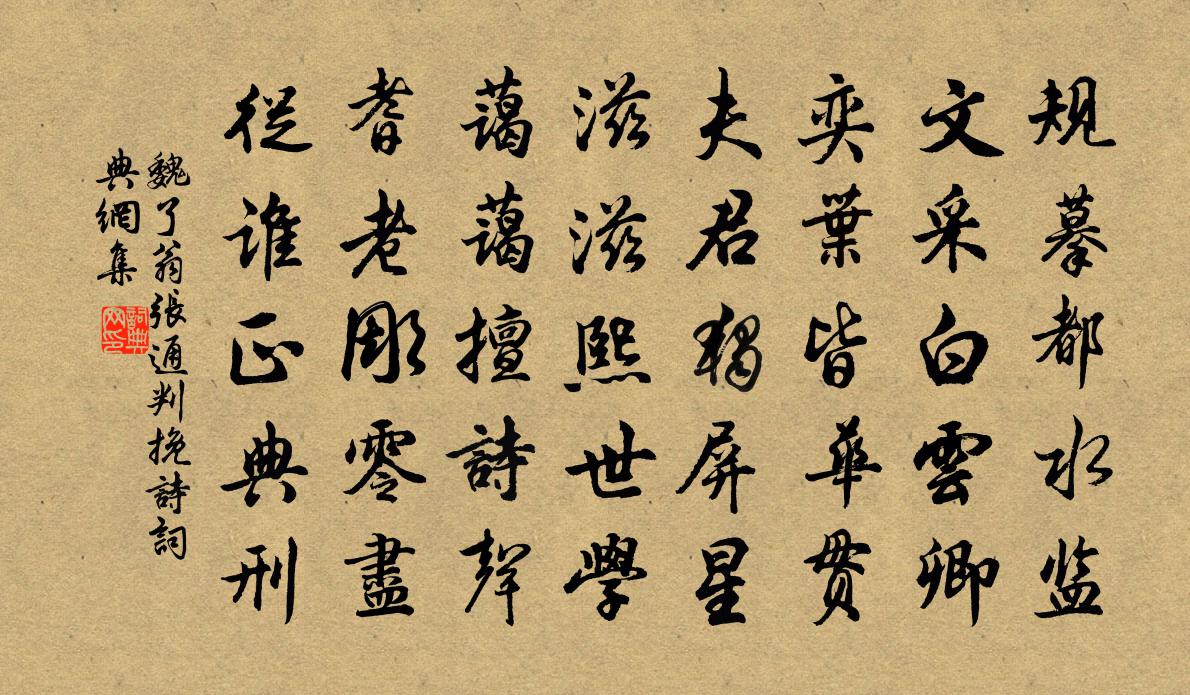 規摹都水监
文采白雲卿
奕葉皆華貫
夫君猲屏星
滋滋熙世學
藹藹擅詩聲
耆老彫零盡
從誰正典刑
魏了翁張通判挽詩詞
典網集
詞典网印